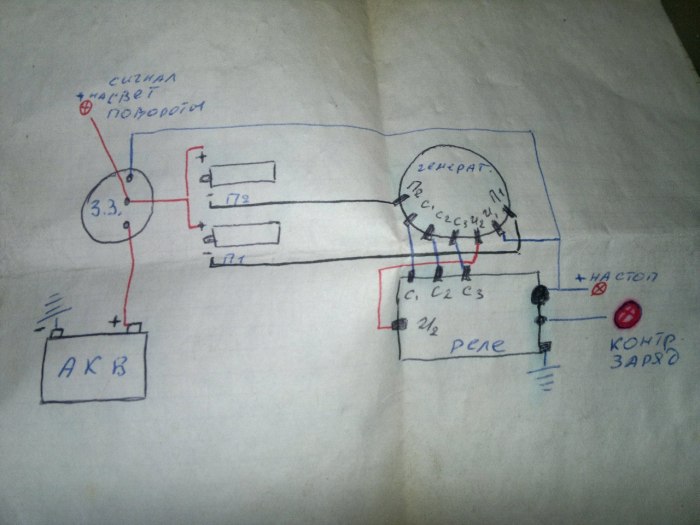 СИГНАЛ
+ на СВЕТ
ПОВОРОТЫ
З.З.
+
-
П2
+
-
П1
генерат.
П2
С1
С2
С3
И2
И1
П1
С1 С2 С3
И2
реле
+ на стоп
КОНТР.
ЗАРЯД
-
+
АКБ